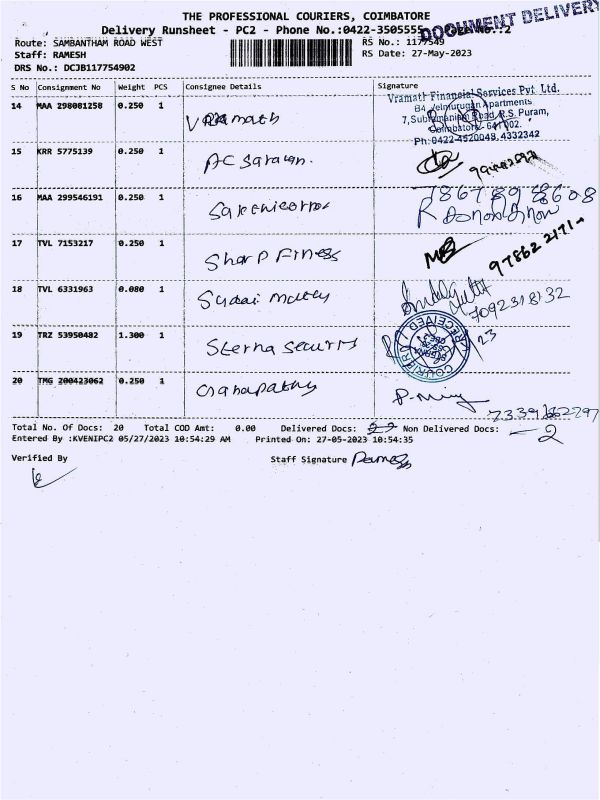 THE PROFESSIONAL COURIERS, COIMBATORE
Delivery Runsheet - PC2 - Phone No.:0422-3505555
DOCUMENT DELIVERY
Route: SAMBANTHAM ROAD WEST
RS No.: 1177549
Staff: RAMESH
RS Date: 27-May-2023
DRS No.: DCJB117754902
S No Consignment No Weight PCS Consignee Details Signature
14 MAA 298081258 0.250 1
Vramath Financial Services Pvt. Ltd.
B4, Velmurugan Apartments
7, Subramaniam Road, R.S. Puram,
Coimbatore- 641 002.
Ph: 0422-4520049, 4332342
15 KRR 5775139 0.250 1 AC Saravan.
16 MAA 299546191 0.250 1
17 TVL 7153217 0.250 1 Sharp Fitness
97862 2171
18 TVL 6331963 0.080 1
7092318132
19 TRZ 53950482 1.300 1 Sterna Security
RECEIVED
COURIER
20 TMG 200423062 0.250 1 Ganapathy
Total No. Of Docs: 20 Total COD Amt: 0.00 Delivered Docs: Non Delivered Docs: 2
Entered By :KVENIPC2 05/27/2023 10:54:29 AM Printed On: 27-05-2023 10:54:35
Verified By Staff Signature Ramesh